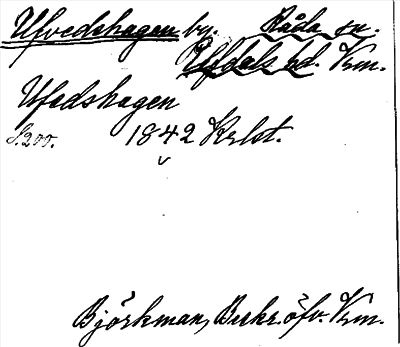 Ulfvedshagen by. Råda sn.
Elfdals hd. Vrm.
Ufvedshagen
S. 200. 1842 Krlst.
Björkman, Beskr. öfv. Vrm.